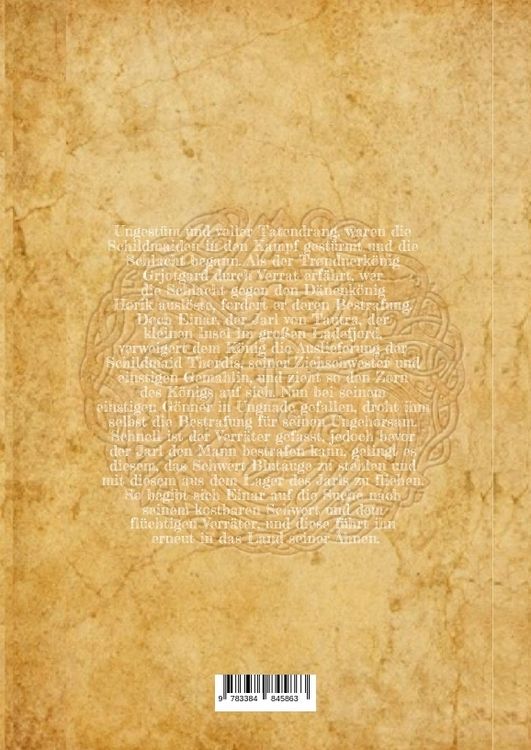 Ungestüm und voller Tatendrang, waren die
Schildmaiden in den Kampf gestürmt und die
Schlacht begann. Als der Trondnerkönig
Grjotgard durch Verrat erfährt, wer
die Schlacht gegen den Dänenkönig
Horik auslöste, fordert er deren Bestrafung.
Doch Einar, der Jarl von Tautra, der
kleinen Insel im großen Ladefjord,
verweigert dem König die Auslieferung der
Schildmaid Thordis, seiner Ziehschwester und
einstigen Gemahlin, und zieht so den Zorn
des Königs auf sich. Nun bei seinem
einstigen Gönner in Ungnade gefallen, droht ihm
selbst die Bestrafung für seinen Ungehorsam.
Schnell ist der Verräter gefasst, jedoch bevor
der Jarl den Mann bestrafen kann, gelingt es
diesem, das Schwert Blutauge zu stehlen und
mit diesem aus dem Lager des Jarls zu fliehen.
So begibt sich Einar auf die Suche nach
seinem kostbaren Schwert und dem
flüchtigen Verräter, und diese führt ihn
erneut in das Land seiner Ahnen.
9 783384 845863